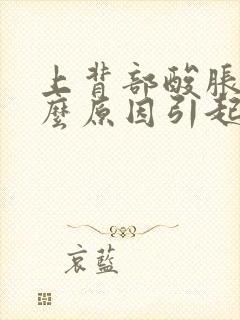 上背部酸脹
麼原因引起
哀藍